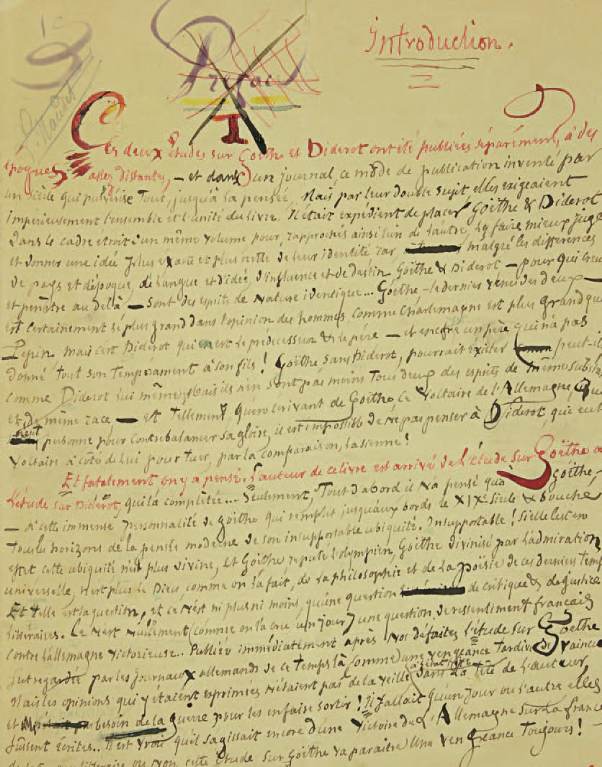 Introduction.
Préface
I
Ces deux Études sur Goëthe et Diderot ont été publiées séparément, à des
époques assez distantes, — et dans d'un journal, ce mode de publication inventé par
un siècle qui publise Tout, jusqu'à la pensée. Mais par leur double sujet elles exigeaient
impérieusement l'ensemble et l'unité du livre. Il était expédient de placer Goëthe & Diderot
dans le cadre étroit d'un même volume pour, rapprochés ainsi l'un de l'autre, les faire mieux juger
et donner une idée plus exacte et plus nette de leur identité car malgré les différences
de pays et d'époque, de langue et d'idées, d'influence et de destin Goëthe & Diderot — pour qui
et pénètre au delà, — sont des esprits de Nature identique... Goëthe — le dernier venu des deux —
est certainement le plus grand dans l'opinion des hommes comme Charlemagne est plus grand que
Pépin, mais c'est Diderot qui est le prédécesseur & le père — et encore un père qui n'a pas
donné tout son Tempérament à son fils! Goëthe sans Diderot, pourrait exister peut-il
comme Diderot lui même, mais ils n'en sont pas moins Tous deux des esprits de même
et de même race — et Tellement qu'en écrivant de Goëthe ce Voltaire de l'Allemagne,
personne pour contrebalancer sa gloire, il est impossible de ne pas penser à Diderot, qui eut
Voltaire à côté de lui pour tuer, par la comparaison, la sienne!
Et fatalement on y a pensé. L'auteur de ce livre est arrivé de l'étude sur Goëthe à
l'étude sur Diderot, qui l'a complétée... Seulement, Tout d'abord il n'a pensé qu'à Goëthe —
— à cette immense Personnalité de Goëthe qui remplit jusqu'aux bords le XIXe siècle & bouche
Tous les horizons de la pensée moderne de son insupportable ubiquité. Insupportable! Si elle
esprit cette ubiquité n'est plus divine, et Goëthe réputé l'olympien, Goëthe divinisé par l'admiration
universelle, n'est plus le Dieu, comme on l'a fait, de la philosophie et de la poésie de ces derniers Temps
Et telle est la question, et ce n'est ni plus ni moins, qu'une question de critique & de justice
littéraires. Ce n'est nullement (comme on l'a cru un jour) une question de ressentiment français
contre l'Allemagne victorieuse... Publiée immédiatement après nos défaites l'étude sur Goëthe
fut regardée par les journaux allemands de ce temps là comme une vengeance tardive de vaincu
Mais les opinions qui y étaient exprimées n'étaient pas de la veille dans la tête de l'auteur
et besoin de la guerre pour les en faire sortir! Il fallait qu'un jour ou l'autre elles
fussent écrites... Il est vrai qu'il s'agissait encore d'une victoire de l'Allemagne sur la France
cette étude sur Goëthe va paraître Une vengeance Toujours! —